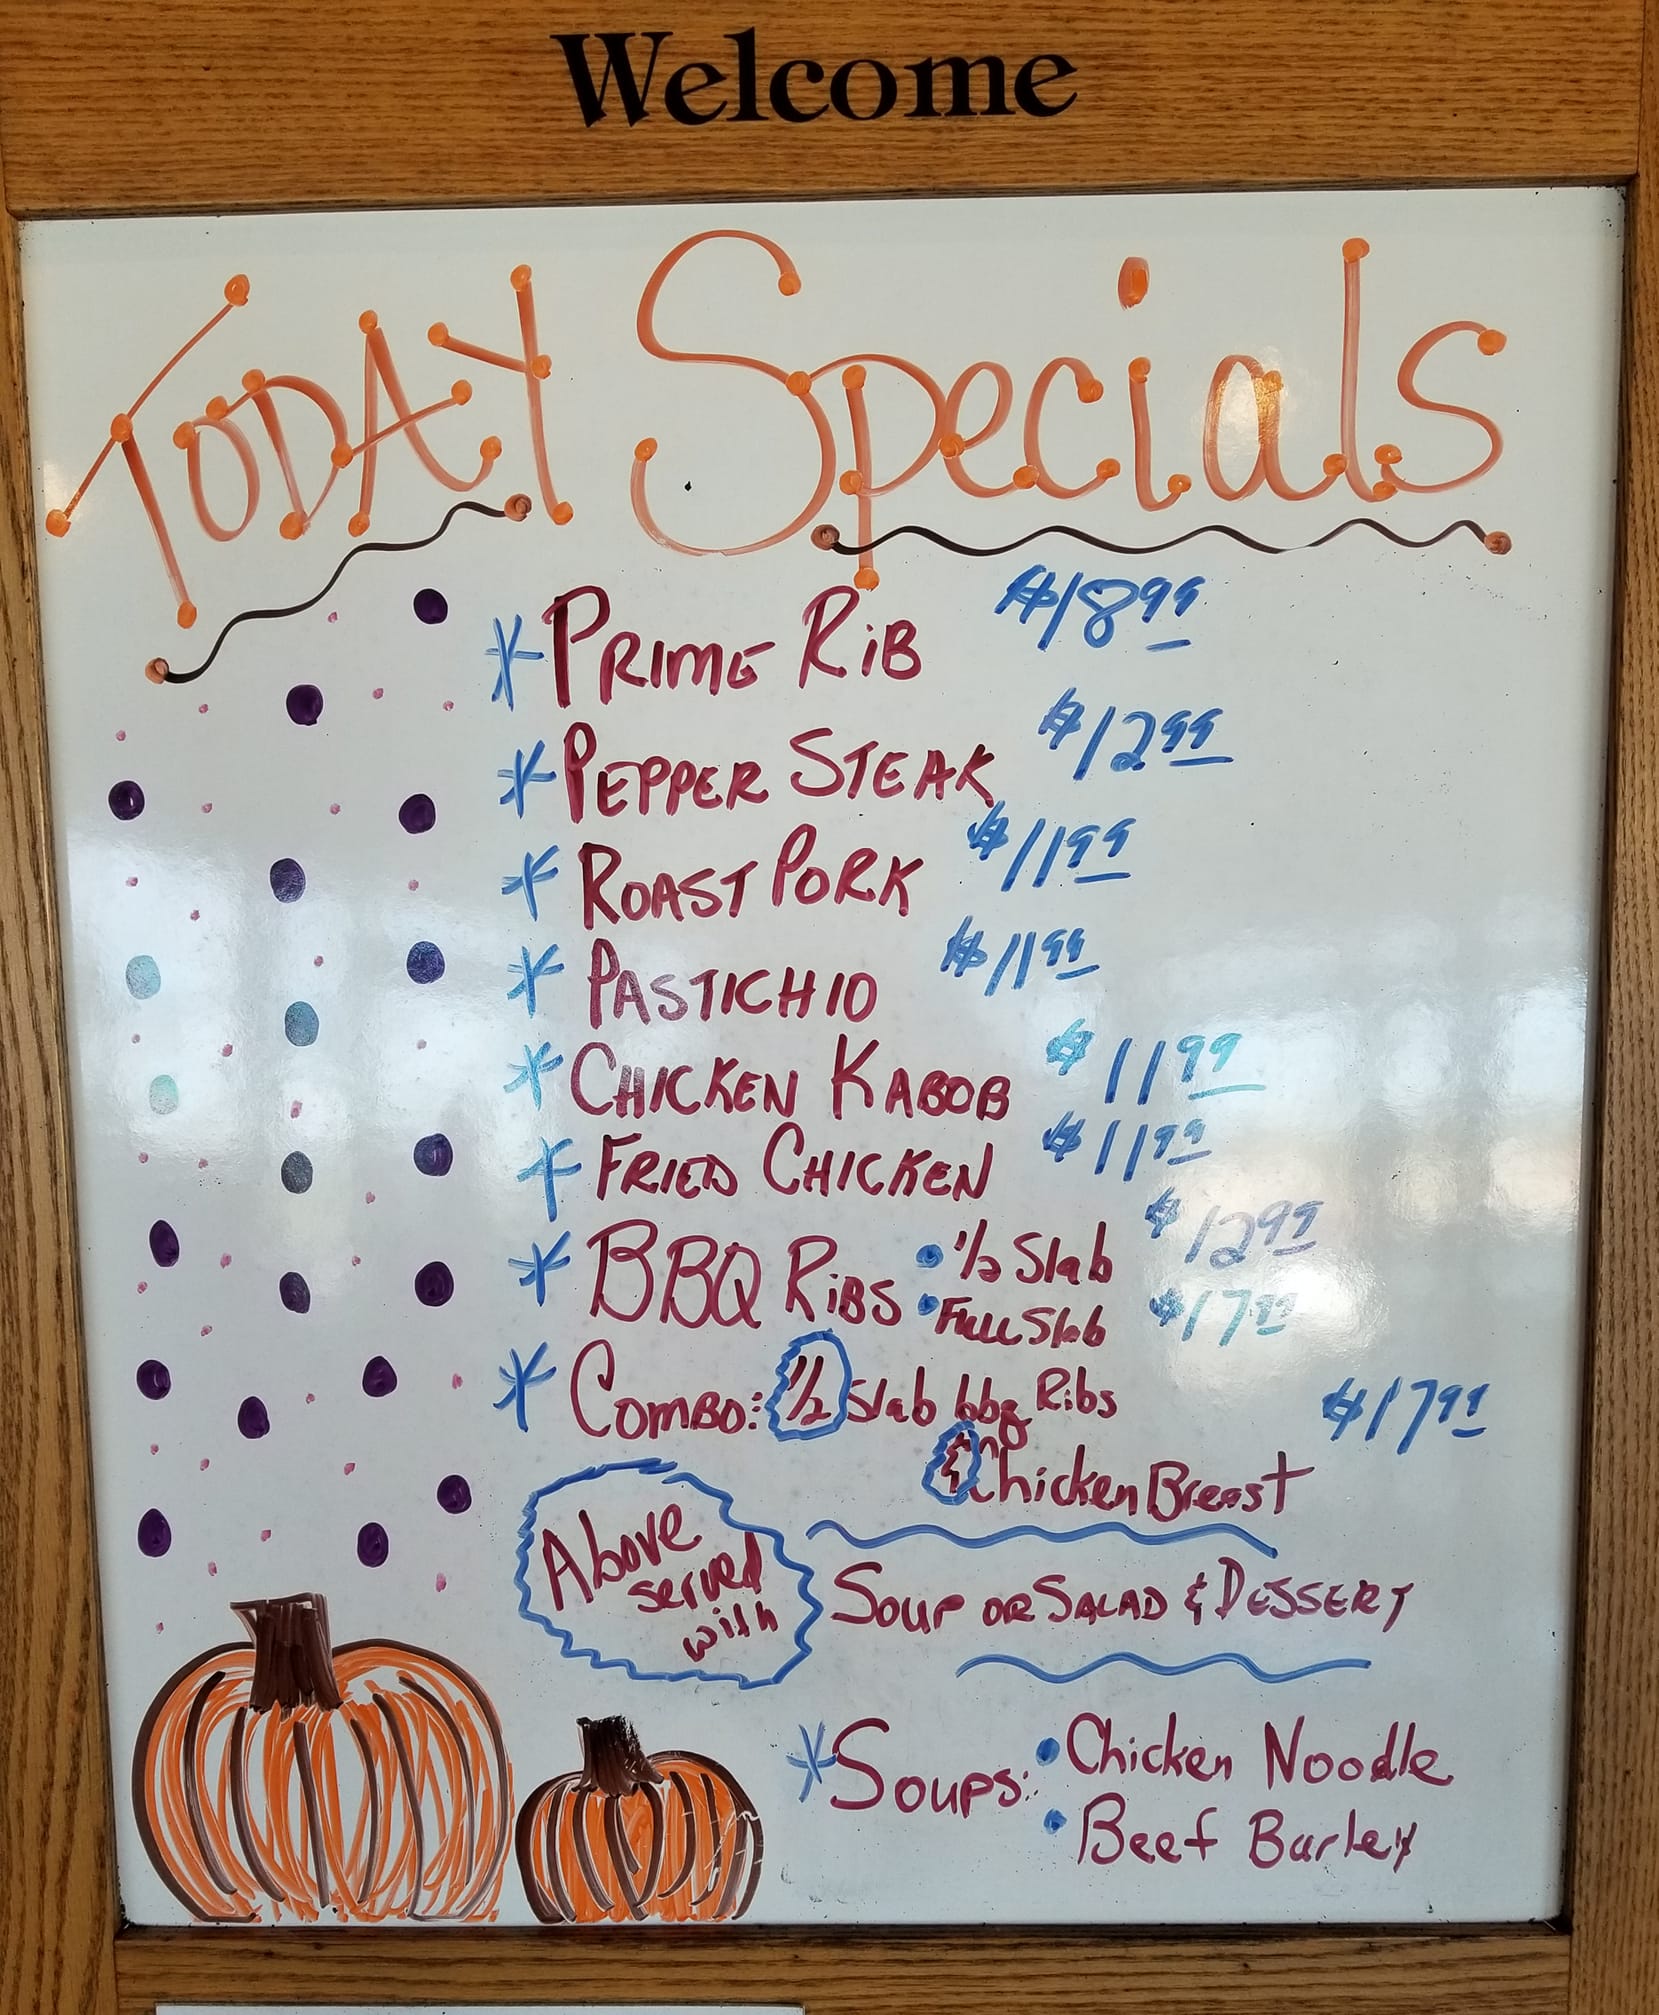 Welcome
TODAY Specials
* PRIME RIB $18.99
* PEPPER STEAK $12.99
* ROAST PORK $11.99
* PASTICHIO $11.99
* CHICKEN KABOB $11.99
* FRIED CHICKEN $11.99
* BBQ RIBS • 1/2 Slab $12.99
• Full Slab $17.99
* COMBO: 1/2 Slab bbq Ribs $17.99
& Chicken Breast
Above
served
with
SOUP OR SALAD & DESSERT
* SOUPS: • Chicken Noodle
• Beef Barley